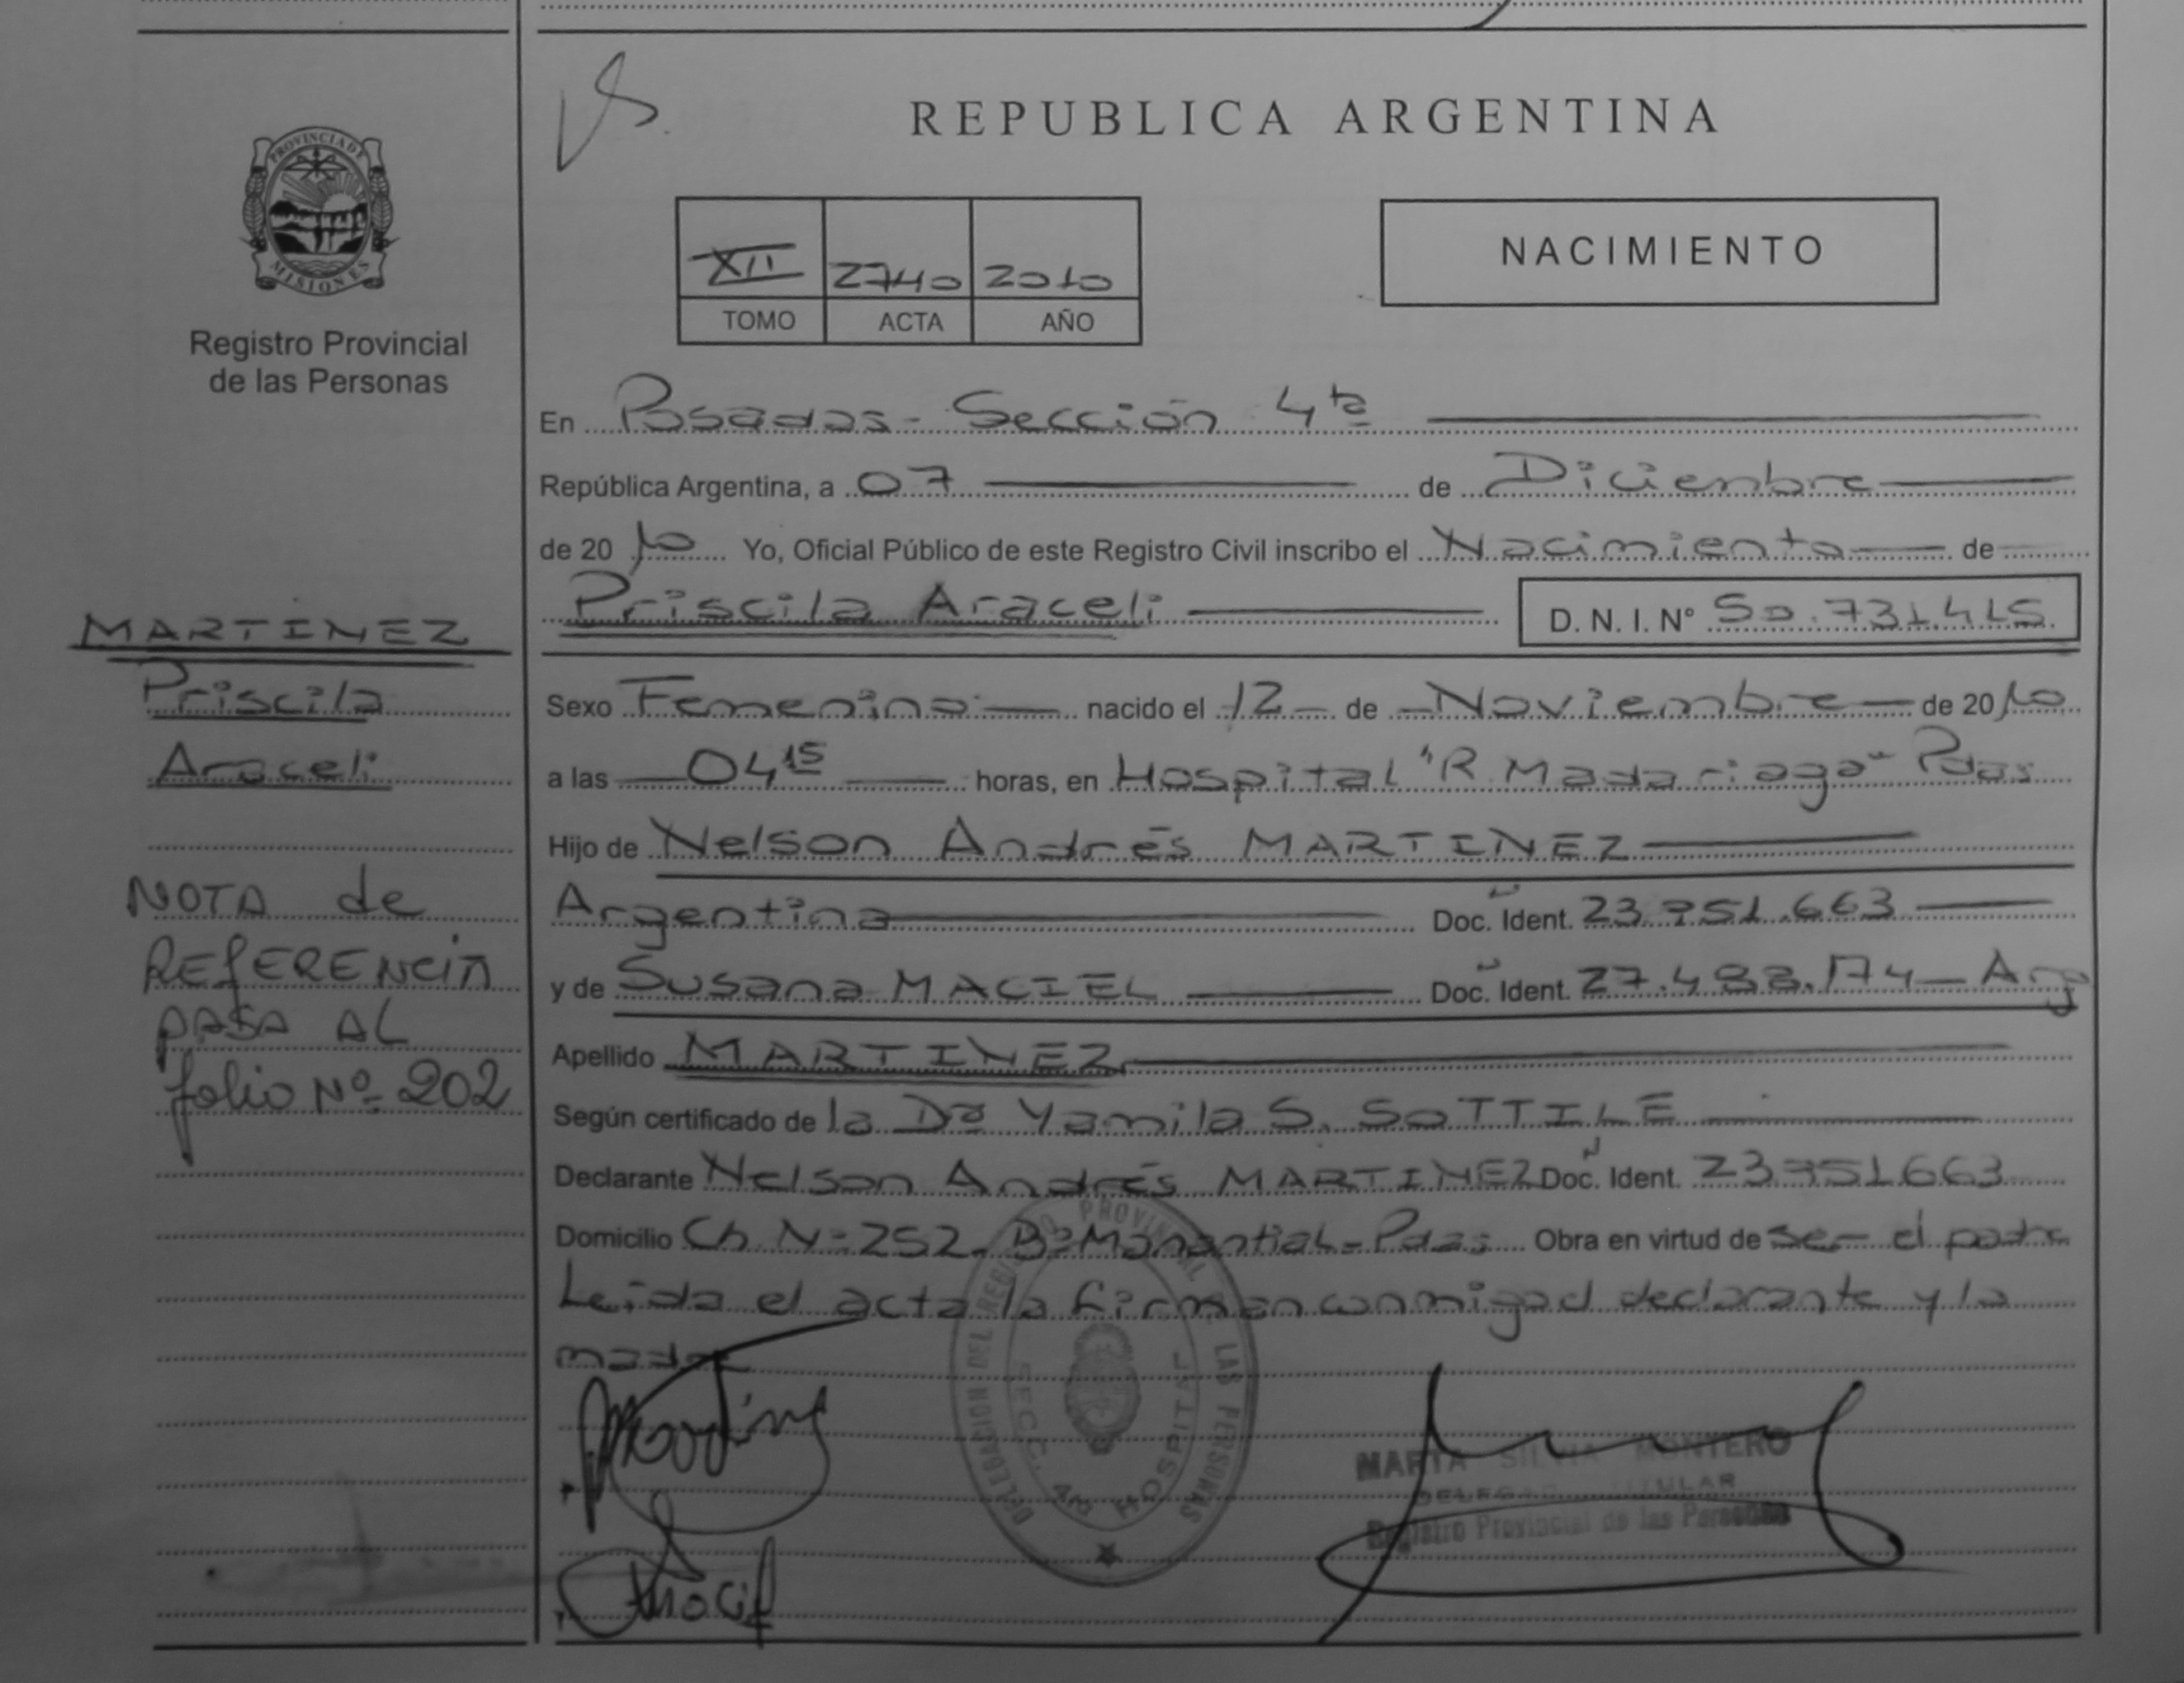 REPUBLICA ARGENTINA
PROVINCIA DE MISIONES
Registro Provincial
de las Personas
XII 2740 2010
TOMO ACTA AÑO
NACIMIENTO
En Posadas - Sección 4ta
República Argentina, a 07 de Diciembre
de 2010 Yo, Oficial Público de este Registro Civil inscribo el Nacimiento de
Priscila Araceli D. N. I. Nº 50.731.415
MARTINEZ
Priscila
Araceli
NOTA de
REFERENCIA
PASA AL
folio Nº 202
Sexo Femenino nacido el 12 de Noviembre de 2010
a las 04 15 horas, en Hospital "R. Madariaga" Pdas
Hijo de Nelson Andrés MARTINEZ
Argentina Doc. Ident. 23.751.663
y de Susana MACIEL Doc. Ident. 27.488.174 - Arg
Apellido MARTINEZ
Según certificado de la Dra Yamila S. SOTTILE
Declarante Nelson Andrés MARTINEZ Doc. Ident. 23751663
Domicilio Ch. Nº 252 - Bº Manantial - Pdas Obra en virtud de ser el padre
Leida el acta la firman conmigo el declarante y la
madre
DELEGACION DEL REGISTRO PROVINCIAL DE LAS PERSONAS
SECC. 4ta HOSPITAL
MARTA SILVIA MONTERO
DELEGADA TITULAR
Registro Provincial de las Personas